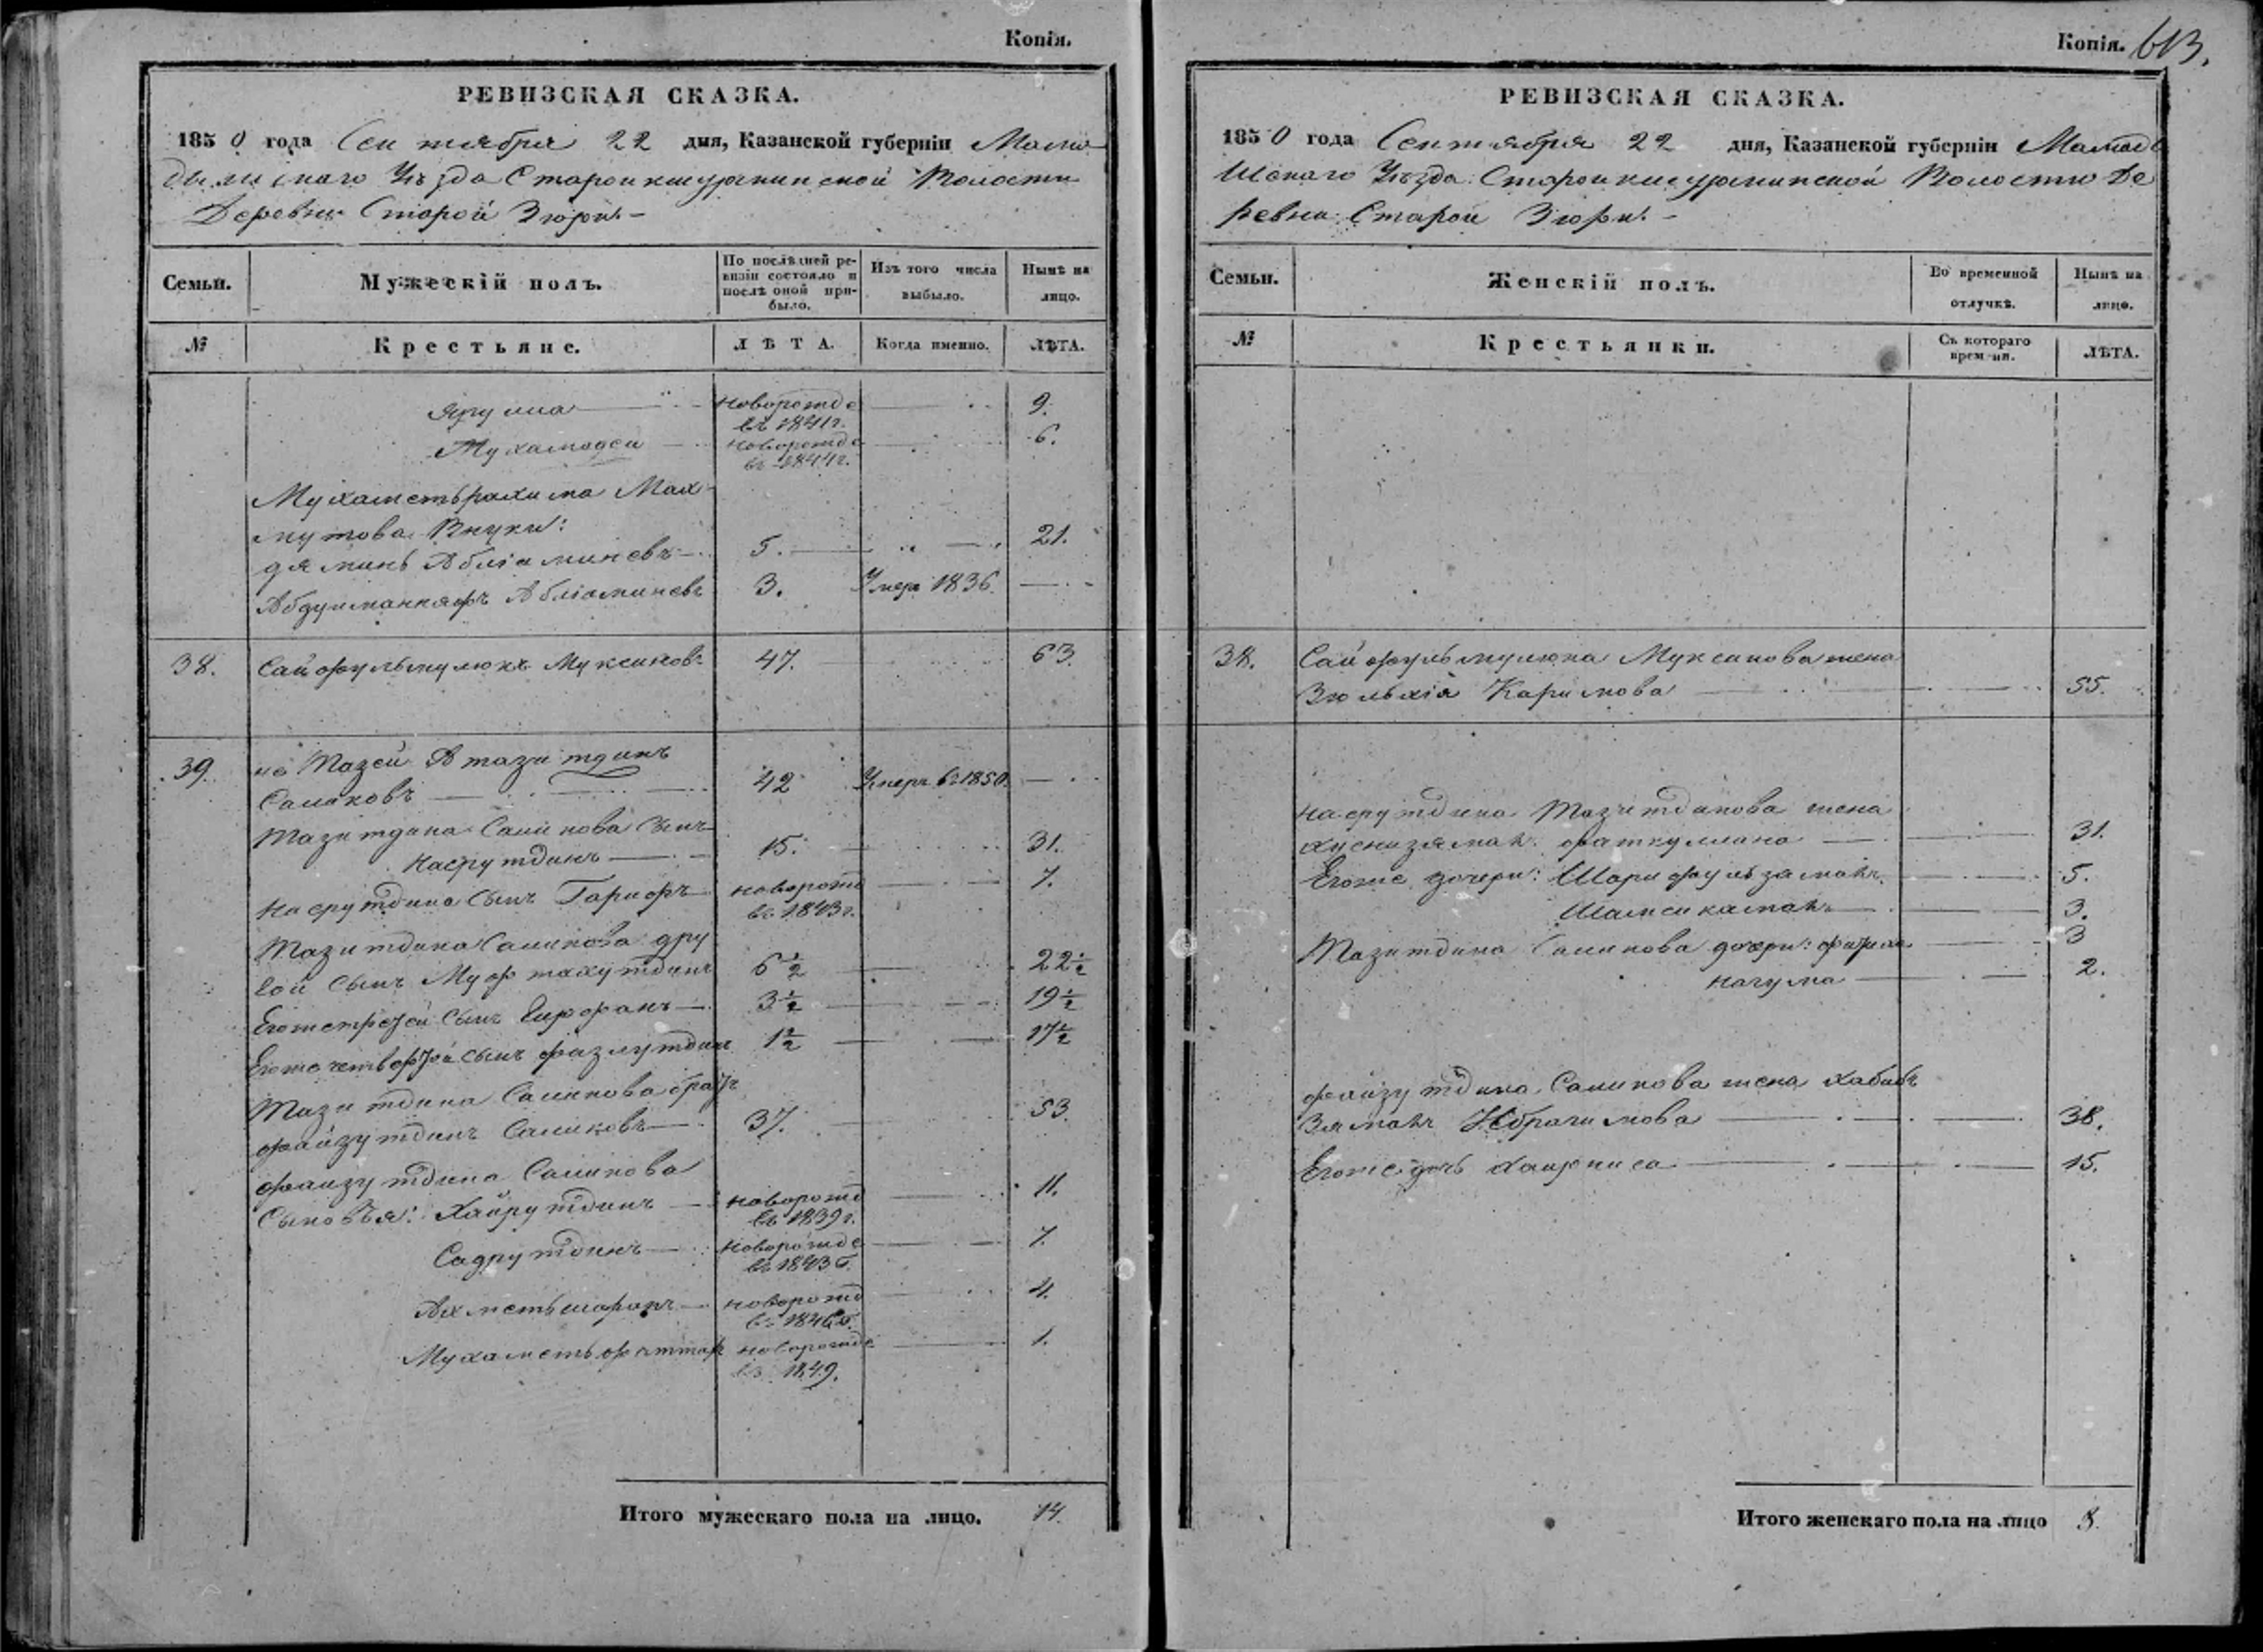 Копія.
РЕВИЗСКАЯ СКАЗКА.
1850 года Сентября 22 дня, Казанской губерніи Мама
дышскаго Уѣзда Волости
Деревни Старой Зюри. –
Семьи. Мужескій полъ. По послѣдней ре-визіи состояло и послѣ оной при-было. Изъ того числа выбыло. Нынѣ на лицо.
№ Крестьяне. ЛѢТА. Когда именно. ЛѢТА.
новорожде 9.
въ 1841г.
новорожде 6.
въ 1844г.
Мухаметьрахима Мах
мутова Внуки:
5. 21.
3. Умеръ 1836.
38. Сайфульмулюкъ Муксиновъ 47. 63.
39.
Саликовъ 42 Умеръ въ 1850.
Мазитдина Саликова Сынъ
Насрутдинъ 15. 31.
Насрутдина Сынъ Гарифъ новорожд 7.
въ 1843г.
Мазитдина Саликова дру
гой Сынъ Муфтахутдинъ 6 1/2 22 1/2
Егоже третей Сынъ 3 1/2 19 1/2
Егоже четвертой сынъ Фазлутдинъ 1 1/2 17 1/2
Мазитдина Саликова братъ
Файзутдинъ Саликовъ 37. 53.
Файзутдина Саликова
Сыновья: Хайрутдинъ новорожд 11.
въ 1839г.
Садрутдинъ новорожде 7.
въ 1843 г.
Ахметьшарапъ новорожд 4.
въ 1846 г.
новорожде 1.
въ 1849.
Итого мужескаго пола на лицо. 14.
Копія. 613.
РЕВИЗСКАЯ СКАЗКА.
1850 года Сентября 22 дня, Казанской губерніи Мамады
шскаго Уѣзда Волости Де
ревни Старой Зюри. –
Семьи. Женскій полъ. Во временной отлучкѣ. Нынѣ на лицо.
№ Крестьянки. Съ котораго времени. ЛѢТА.
38. Сайфульмулюка Муксинова жена
Зюльхія Каримова 55.
Насрутдина Мазитдинова жена
31.
Егоже дочери: 5.
Шамсикамаль 3.
Мазитдина Саликова дочери: 3
2.
Файзутдина Саликова жена Хабибъ
Зямалъ Ибрагимова 38.
Егоже дочь 15.
Итого женскаго пола на лицо 8.